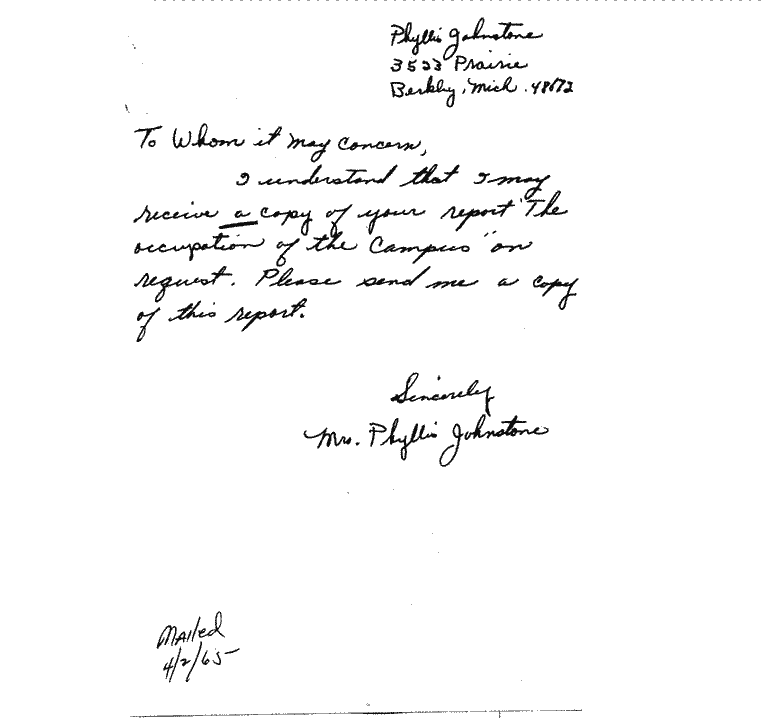 Phyllis Johnstone
3523 Prairie
Berkley, Mich. 48072
To Whom it may concern,
I understand that I may
receive a copy of your report "The
occupation of the Campus" on
request. Please send me a copy
of this report.
Sincerely
Mrs. Phyllis Johnstone
Mailed
4/2/65